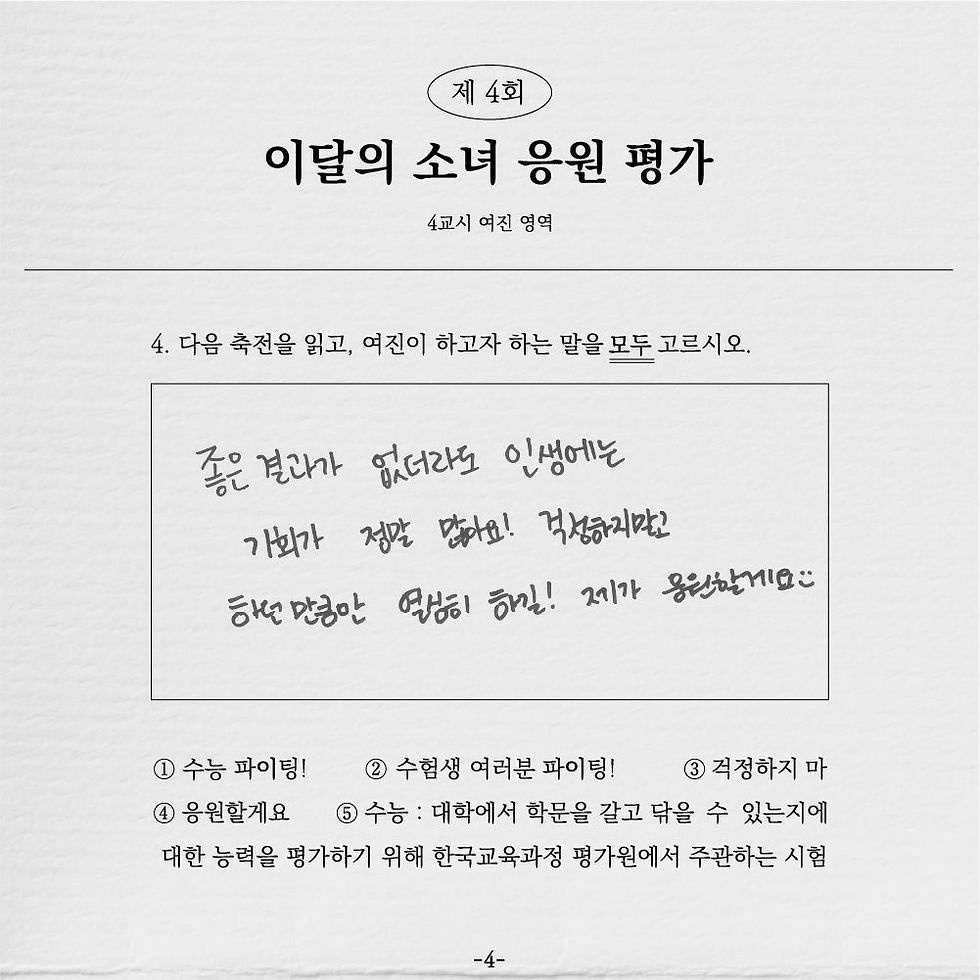 제 4회
이달의 소녀 응원 평가
4교시 여진 영역
4. 다음 축전을 읽고, 여진이 하고자 하는 말을 모두 고르시오.
좋은 결과가 없더라도 인생에는
기회가 정말 많아요! 걱정하지말고
하던 만큼만 열심히 하길! 제가 응원할게요
① 수능 파이팅! ② 수험생 여러분 파이팅! ③ 걱정하지 마
④ 응원할게요 ⑤ 수능 : 대학에서 학문을 갈고 닦을 수 있는지에
대한 능력을 평가하기 위해 한국교육과정 평가원에서 주관하는 시험
-4-